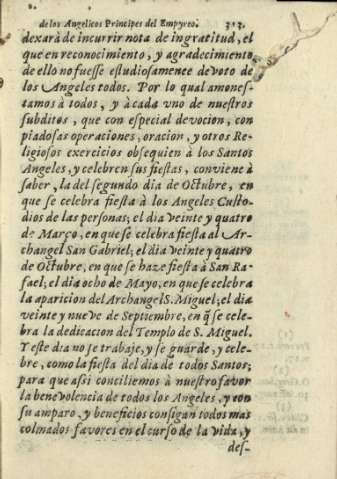 de los Angelicos Principes del Empyreo. 313.
dexarà de incurrir nota de ingratitud, el
que en reconocimiento, y agradecimiento
de ello no fuesse estudiosamente devoto de
los Angeles todos. Por lo qual amones-
tamos à todos, y à cada uno de nuestros
subditos, que con especial devocion, con
piadosas operaciones, oracion, y otros Re-
ligiosos exercicios obsequien à los Santos
Angeles, y celebren sus fiestas, conviene à
saber, la del segundo dia de Octubre, en
que se celebra fiesta à los Angeles Custo-
dios de las personas; el dia veinte y quatro
de Março, en que se celebra fiesta al Ar-
changel San Gabriel; el dia veinte y quatro
de Octubre, en que se haze fiesta à San Ra-
fael; el dia ocho de Mayo, en que se celebra
la aparicion del Archangel S. Miguel; el dia
veinte y nueve de Septiembre, en q̃ se cele-
bra la dedicacion del Templo de S. Miguel.
Y este dia no se trabaje, y se guarde, y cele-
bre, como la fiesta del dia de todos Santos;
para que assi conciliemos à nuestro favor
la benevolencia de todos los Angeles, y con
su amparo, y beneficios consigan todos mas
colmados favores en el curso de la vida, y
des-